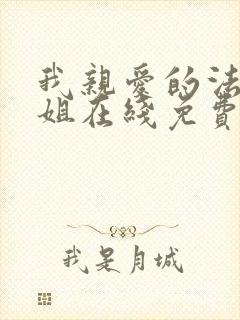 我親愛的法
姐在綫免費
我是月城